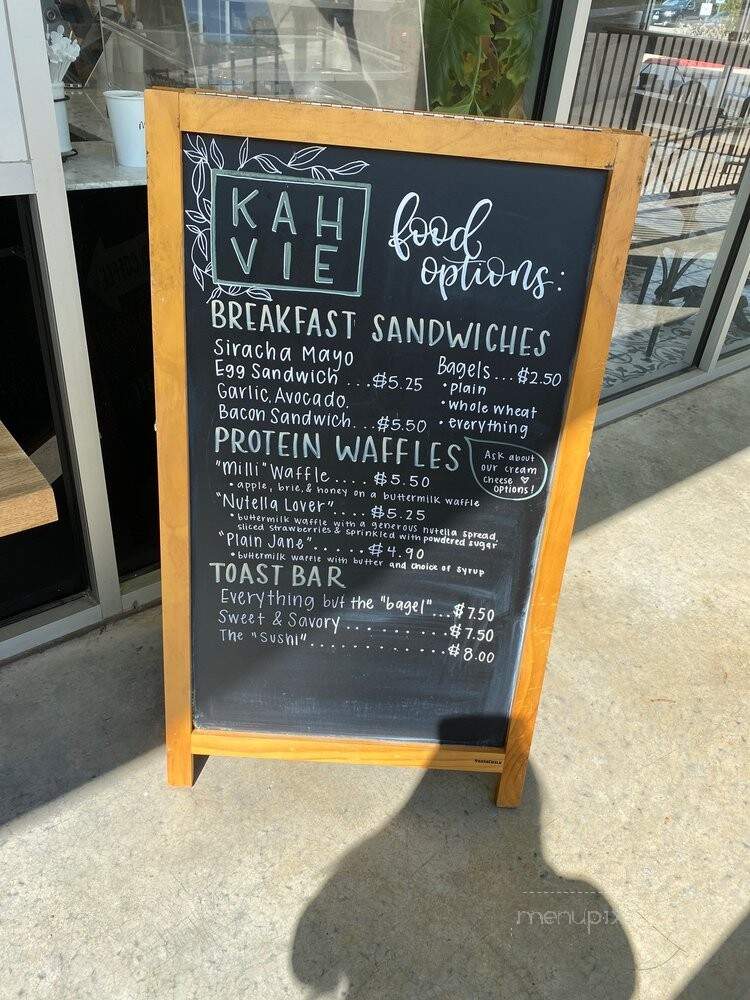 KAH
VIE
food
options:
BREAKFAST SANDWICHES
Siracha Mayo
Egg Sandwich ...$5.25
Garlic, Avocado,
Bacon Sandwich...$5.50
Bagels...$2.50
• plain
• whole wheat
• everything
PROTEIN WAFFLES
Ask about
our cream
cheese ♡
options!
"Milli" Waffle..... $5.50
• apple, brie, & honey on a buttermilk waffle
"Nutella Lover".... $5.25
• buttermilk waffle with a generous nutella spread,
sliced strawberries & sprinkled with powdered sugar
"Plain Jane"...... $4.90
• buttermilk waffle with butter and choice of syrup
TOAST BAR
Everything but the "bagel"...$7.50
Sweet & Savory..........$7.50
The "Sushi"..............$8.00
menupix